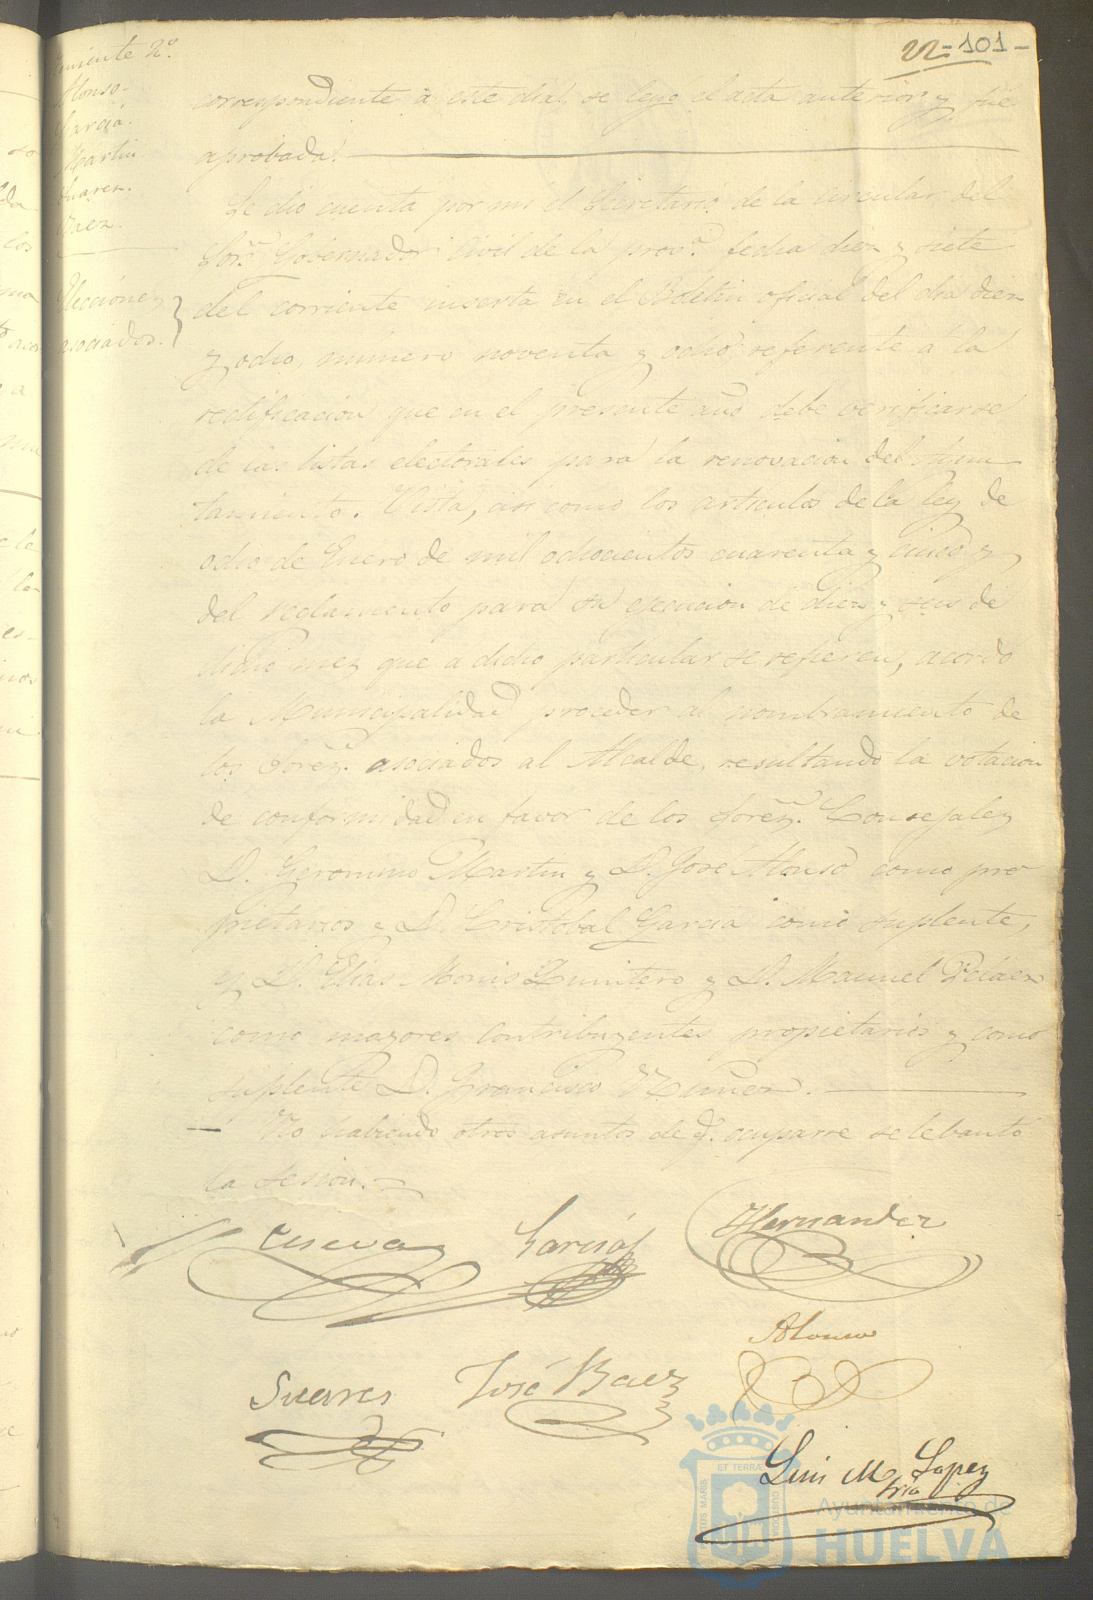 22 - 101 -
Teniente 2º.
Alonso.
García.
Martin.
Suarez.
Baez.
Elecciones
asociados.
correspondiente á este dia, se leyo el acta anterior y fue
aprobada.
Se dio cuenta por mi el Secretario de la circular del
Sor. Gobernador Civil de la prova. fecha diez y siete
del corriente inserta en el Boletin oficial del dia diez
y ocho, número noventa y ocho, referente á la
rectificacion que en el presente año debe verificarse
de las listas electorales para la renovacion del Ayun
tamiento. Vista, asi como los articulos de la ley de
ocho de Enero de mil ochocientos cuarenta y cinco y
del reglamento para su ejecucion de diez y seis de
dicho mes que a dicho particular se refieren, acordó
la Municipalidad proceder al nombramiento de
los Sores. asociados al Alcalde, resultando la votacion
de conformidad en favor de los Sores. Concejales
D. Geronimo Martin y D. José Alonso como pro
pietarios y D. Cristobal Garcia como suplente,
y D. Elias Monis Quintero y D. Manuel
como mayores contribuyentes propietarios y como
suplente D. Francisco Nuñez.
No habiendo otros asuntos de q. ocuparse se lebantó
la sesion.
Cueva García Hernandez
Alonso
Suares José Baez
Luis M. Lopez
Srio
ET TERRÆ
PORTUS MARIS
CUSTODIA
Ayuntamiento de
HUELVA